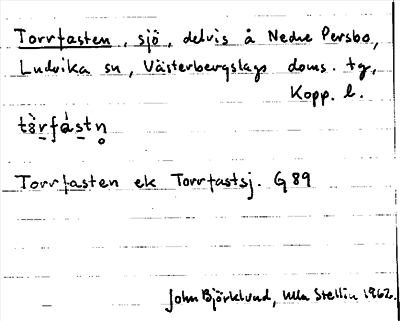 Torrfasten, sjö, delvis å Nedre Persbo,
Ludvika sn, Västerbergslags doms. tg,
Kopp. l.
tòrfástn̥
Torrfasten ek Torrfastsj. G 89
John Björklund, Ulla Stellin 1962.